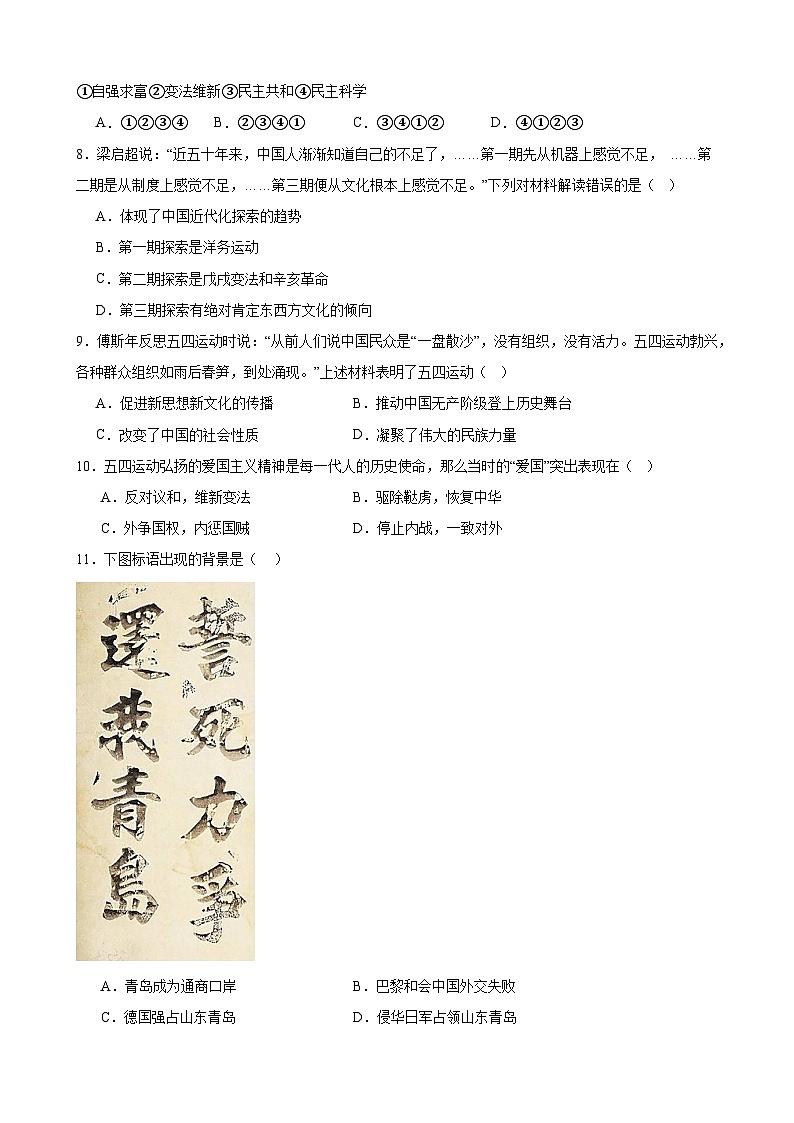 ①自强求富②变法维新③民主共和④民主科学
A．①②③④ B．②③④① C．③④①② D．④①②③
8．梁启超说：“近五十年来，中国人渐渐知道自己的不足了，……第一期先从机器上感觉不足， ……第
二期是从制度上感觉不足，……第三期便从文化根本上感觉不足。”下列对材料解读错误的是（ ）
A．体现了中国近代化探索的趋势
B．第一期探索是洋务运动
C．第二期探索是戊戌变法和辛亥革命
D．第三期探索有绝对肯定东西方文化的倾向
9．傅斯年反思五四运动时说：“从前人们说中国民众是“一盘散沙”，没有组织，没有活力。五四运动勃兴，
各种群众组织如雨后春笋，到处涌现。”上述材料表明了五四运动（ ）
A．促进新思想新文化的传播 B．推动中国无产阶级登上历史舞台
C．改变了中国的社会性质 D．凝聚了伟大的民族力量
10．五四运动弘扬的爱国主义精神是每一代人的历史使命，那么当时的“爱国”突出表现在（ ）
A．反对议和，维新变法 B．驱除鞑虏，恢复中华
C．外争国权，内惩国贼 D．停止内战，一致对外
11．下图标语出现的背景是（ ）
誓死力争
还我青岛
A．青岛成为通商口岸 B．巴黎和会中国外交失败
C．德国强占山东青岛 D．侵华日军占领山东青岛